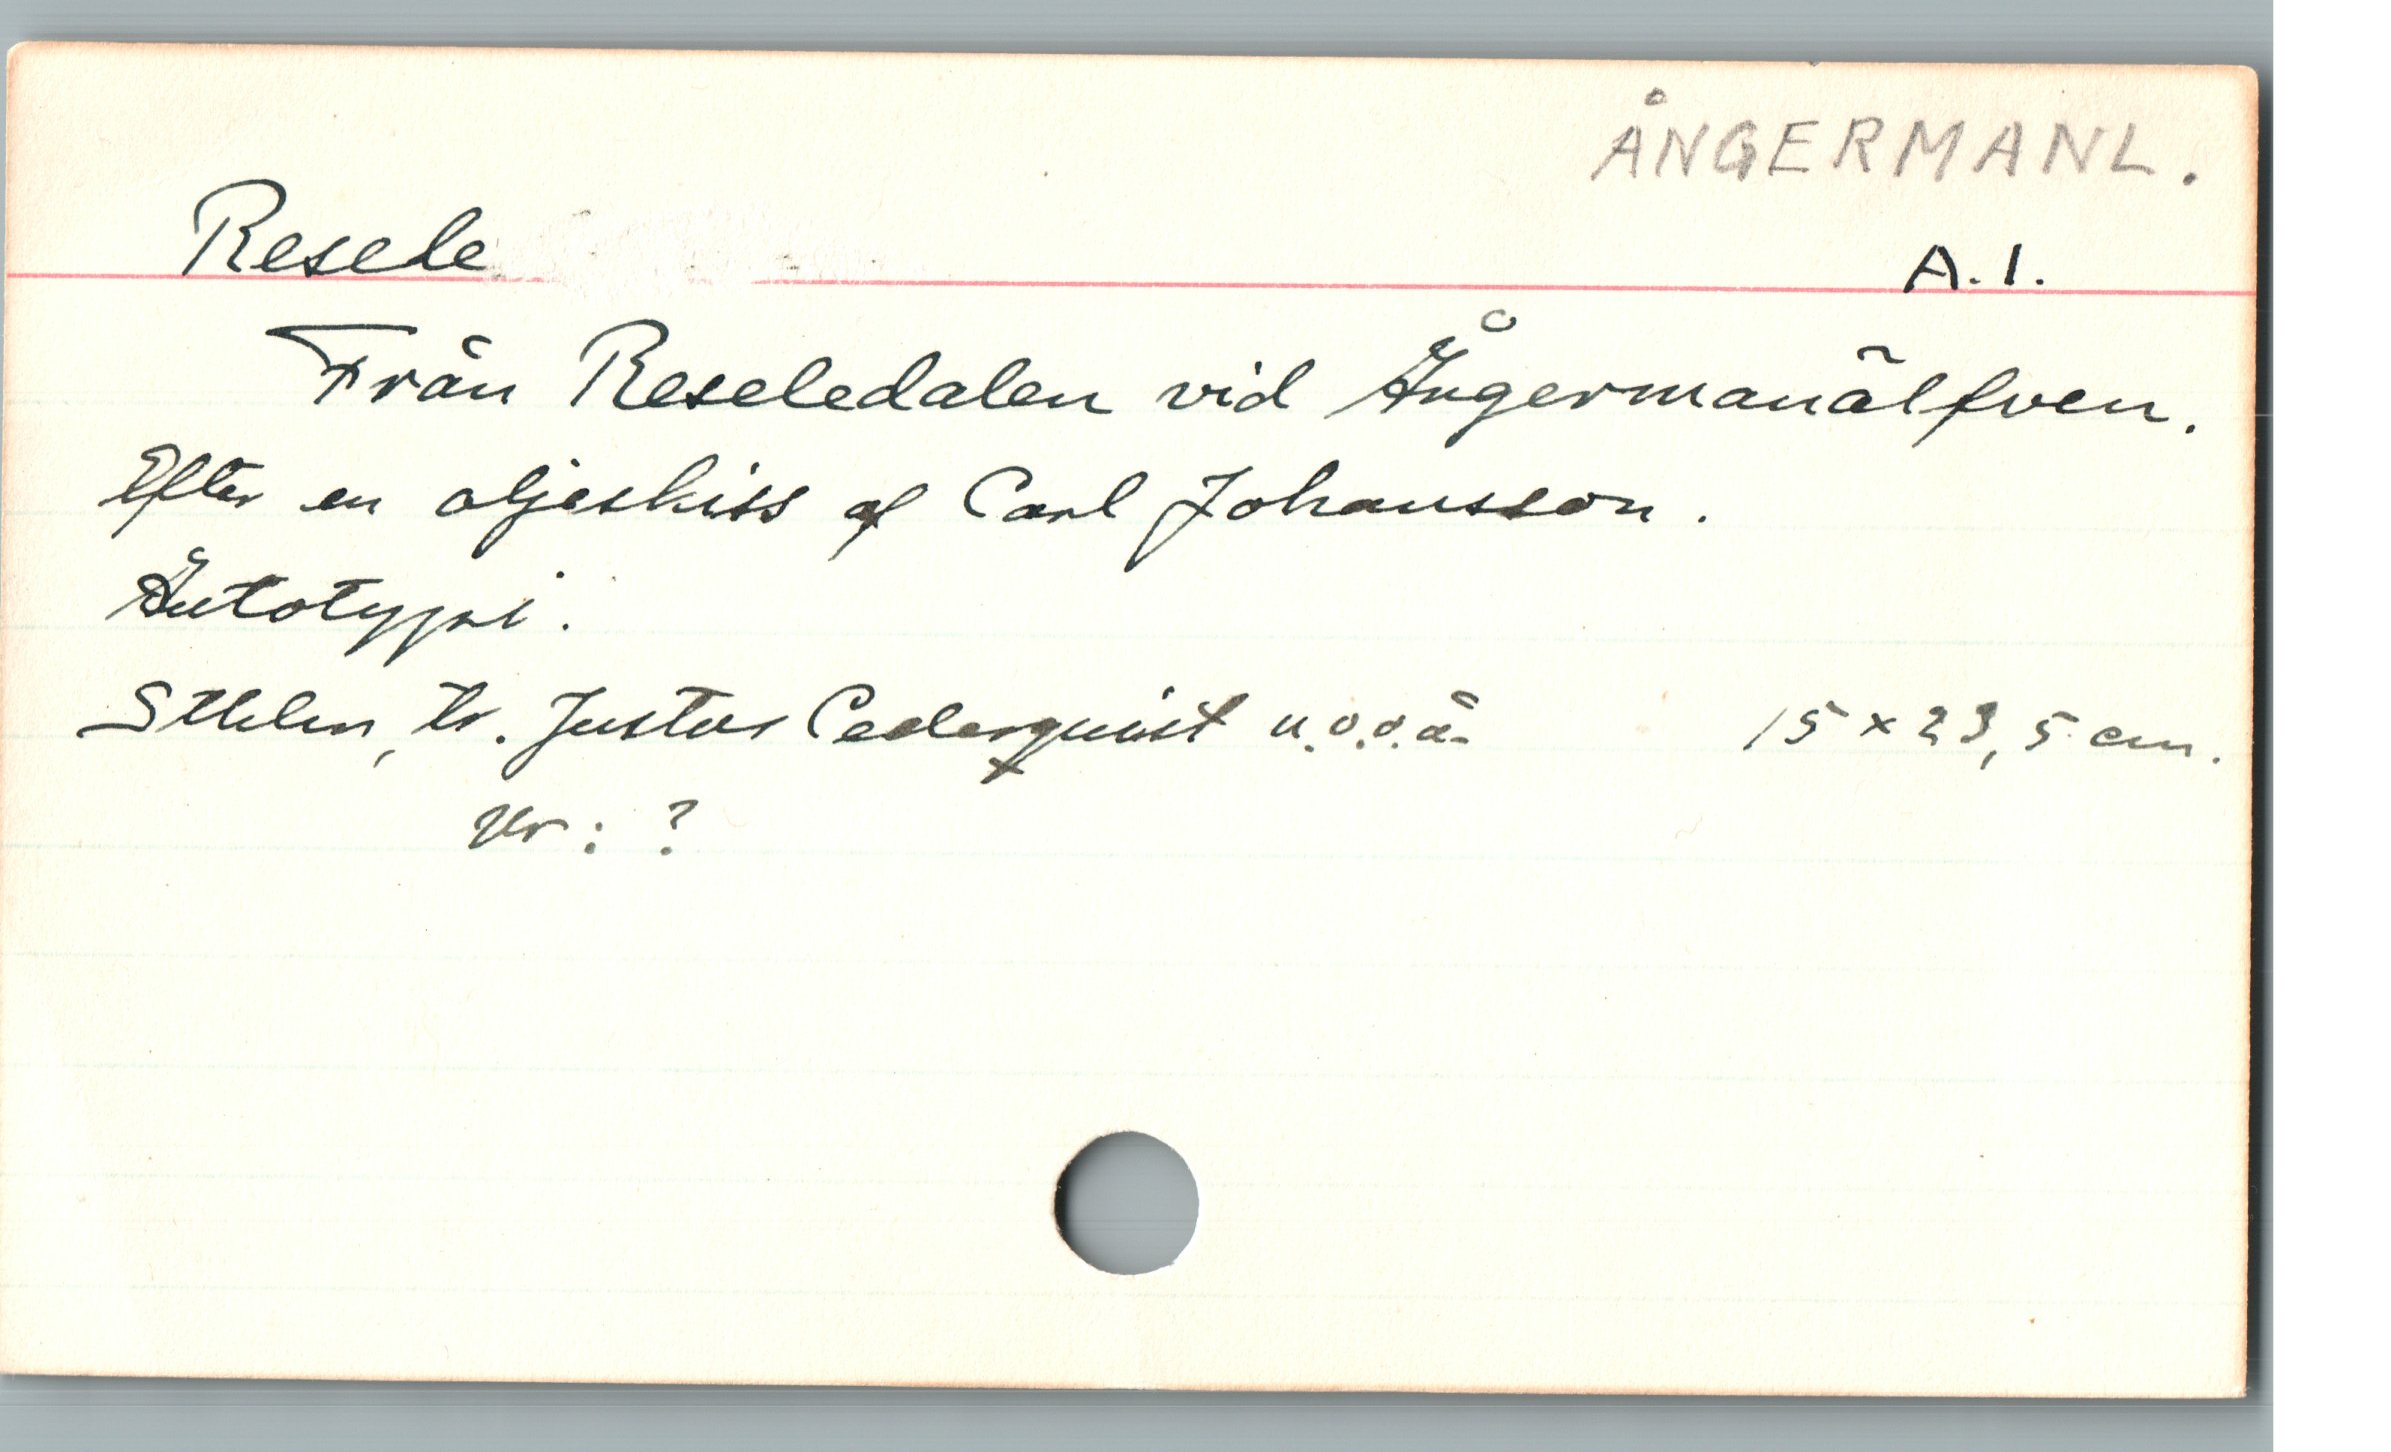 ÅNGERMANL.
Resele A.1.
Från Reseledalen vid Ångermanälfven.
Efter en oljeskiss af Carl Johansson.
Autotypi.
Sthlm, tr. Justus Cederquist u.o.o.å. 15 x 23,5 cm.
Ur: ?